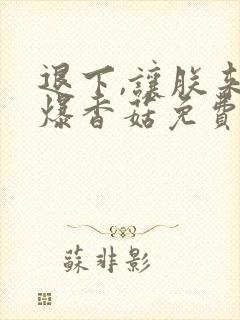 退下,讓朕来
爆香菇免費
蘇非影